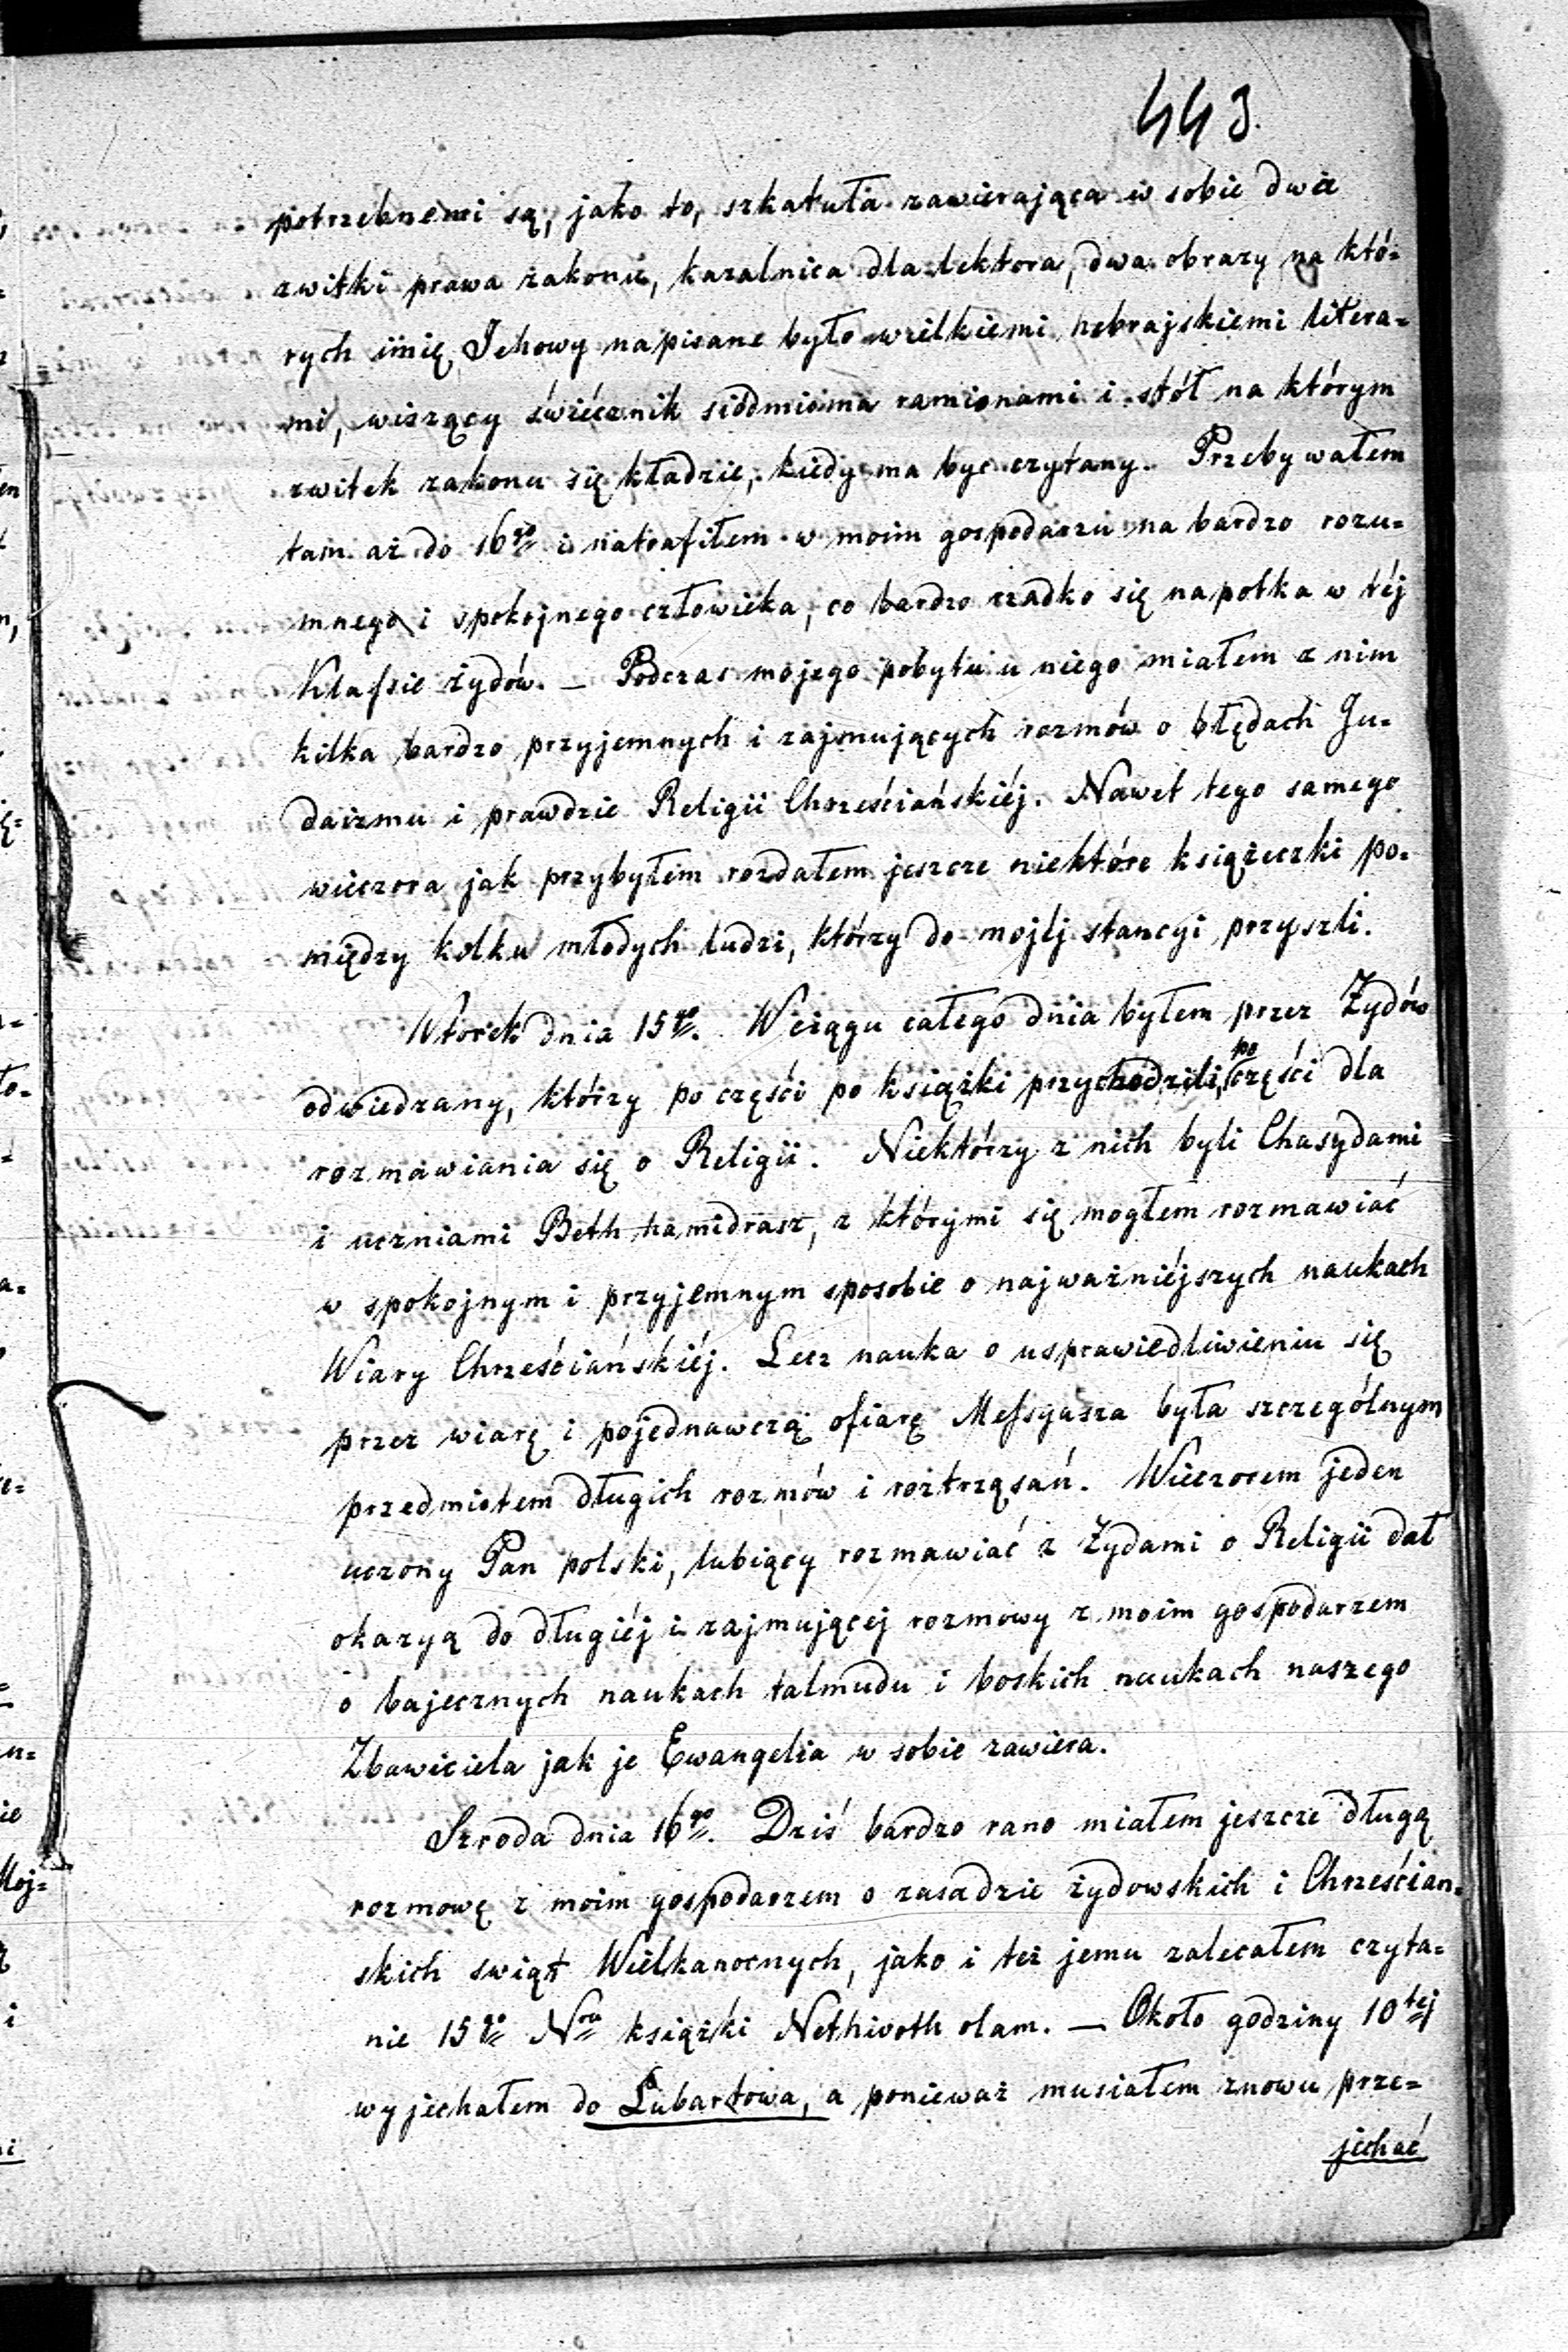 443.
potrzebnemi są, jako to, szkatuła zawierająca w sobie dwie
zwitki prawa zakonu, kazalnica dla lektora, dwa obrazy na któ-
rych imię Jehowy napisane było wielkiemi hebrajskiemi litera-
mi, wiszący świécznik siódmioma ramionami i stół na którym
zwitek zakonu się kładzie, kiedy ma byc czytany. Przebywałem
tam aż do 16go i natrafiłem w moim gospodarzu na bardzo rozu-
mnego i spokojnego człowieka, co bardzo rzadko się napotka w téj
Klassie żydów. — Podczas mojego pobytu u niego miałem z nim
kilka bardzo przyjemnych i zajmujących rozmów o błędach Ju-
daizmu i prawdzie Religii Chrześciańskiéj. Nawet tego samego
wieczora jak przybyłem rozdałem jeszcze niektóre książeczki po-
między kilku młodych ludzi, którzy do mojéj stancyi przyszli.
Wtorek dnia 15go. W ciągu całego dnia byłem przez Żydów
odwiedzany, którzy po części po książki przychodzili, po części dla
rozmawiania się o Religii. Niektórzy z nich byli Chasydami
i uczniami Beth hamidrasz, z którymi się mogłem rozmawiać
w spokojnym i przyjemnym sposobie o najważniéjszych naukach
Wiary Chrześciańskiéj. Lecz nauka o usprawiedliwieniu się
przez wiarę i pojednawczą ofiarę Messyasza była szczególnym
przedmiotem długich rozmów i roztrząsań. Wieczorem jeden
uczony Pan polski, lubiący rozmawiać z Żydami o Religii dał
okazyą do długiéj i zajmującej rozmowy z moim gospodarzem
o bajecznych naukach talmudu i boskich naukach naszego
Zbawiciela jak je Ewangelia w sobie zawiera.
Szroda dnia 16go. Dziś bardzo rano miałem jeszcze długą
rozmowę z moim gospodarzem o zasadzie żydowskich i Chrześcian-
skich swiąt Wielkanocnych, jako i też jemu zalecałem czyta-
nie 15go Nru książki Nethivoth olam. — Około godziny 10tej
wyjechałem do Lubartowa, a ponieważ musiałem znowu prze-
jechać